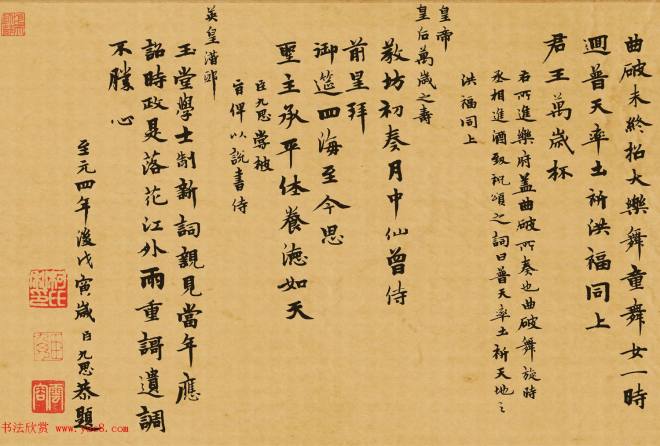 曲破未終招大樂舞童舞女一時
迴普天率土祈洪福同上
君王萬歲杯
右所進樂府蓋曲破所奏也曲破舞旋時
丞相進酒致祝頌之詞曰普天率土祈天地之
洪福同上
皇帝
皇后萬歲之壽
教坊初奏月中仙曾侍
前星拜
御筵四海至今思
聖主承平休養德如天
臣九思嘗被
旨俾以說書侍
英皇潛邸
玉堂學士制新詞親見當年應
詔時政是落花江外雨重謌遺調
不勝心
至元四年後戊寅歲臣九思恭題
柯氏
書法欣賞 www.yac8.com